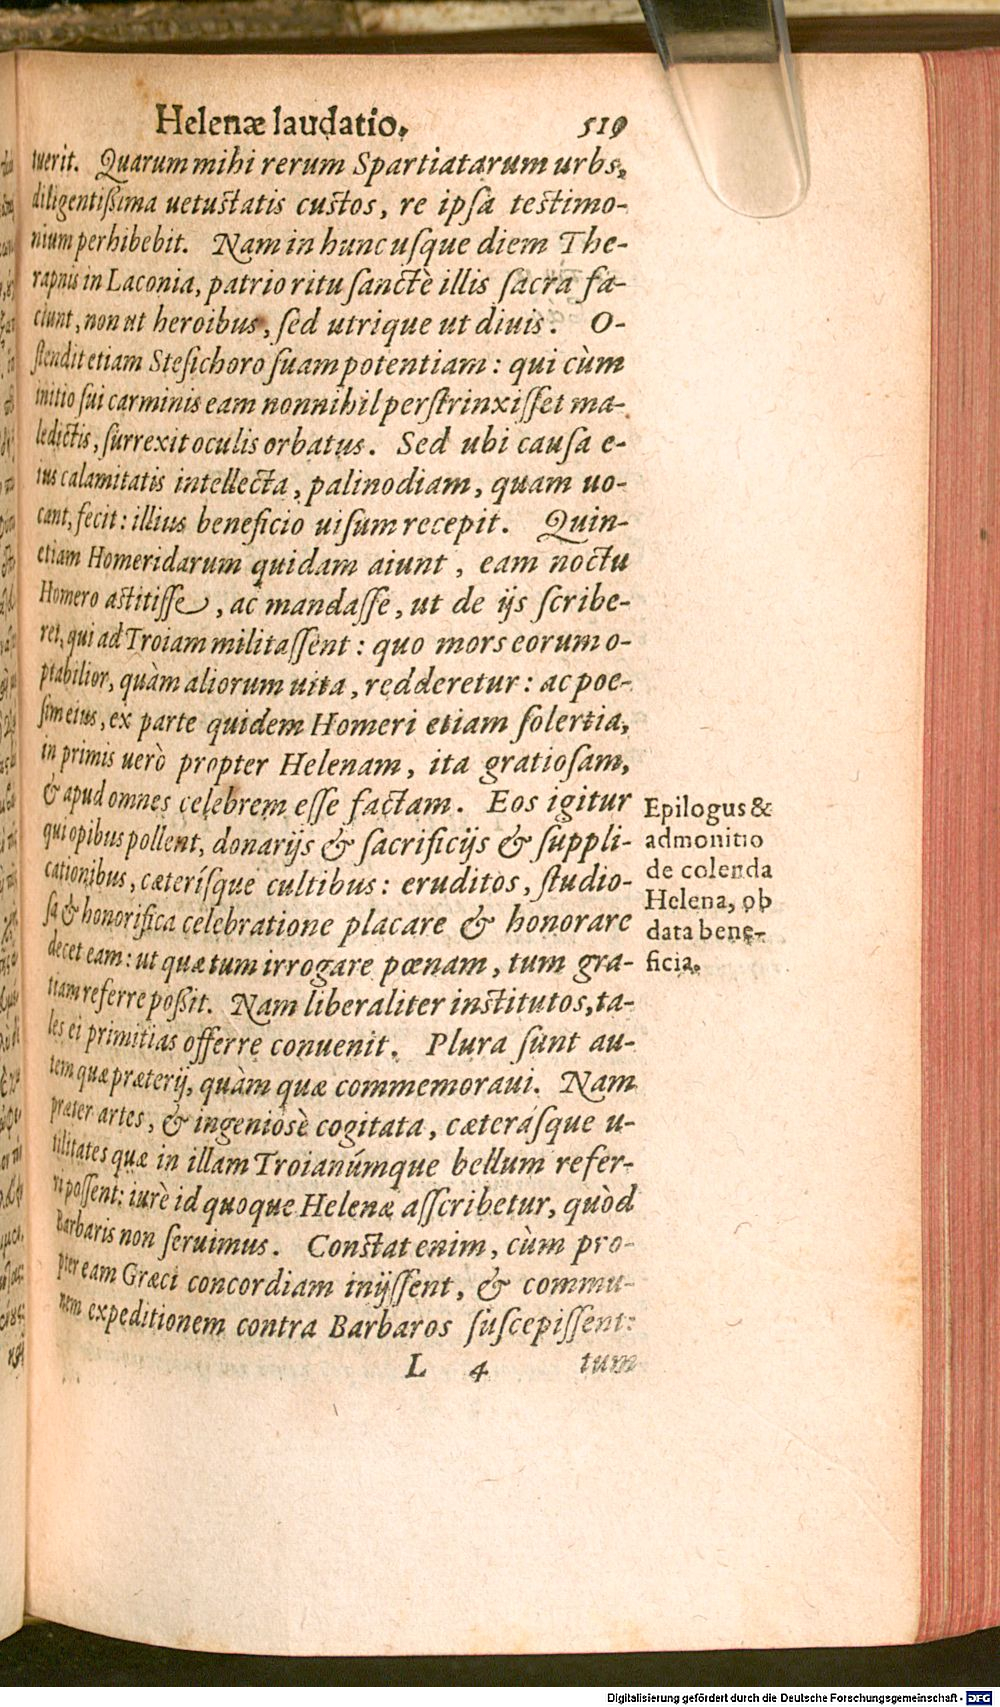 Helenæ laudatio. 519
tuerit. Quarum mihi rerum Spartiatarum urbs,
diligentißima uetustatis custos, re ipsa testimo-
nium perhibebit. Nam in hunc usque diem The-
rapnis in Laconia, patrio ritu sanctè illis sacra fa-
ciunt, non ut heroibus, sed utrique ut diuis. O-
stendit etiam Stesichoro suam potentiam: qui cùm
initio sui carminis eam nonnihil perstrinxisset ma-
ledictis, surrexit oculis orbatus. Sed ubi causa e-
ius calamitatis intellecta, palinodiam, quam uo-
cant, fecit: illius beneficio uisum recepit. Quin-
etiam Homeridarum quidam aiunt, eam noctu
Homero astitisse, ac mandasse, ut de ijs scribe-
ret, qui ad Troiam militassent: quo mors eorum o-
ptabilior, quàm aliorum uita, redderetur: ac poe-
sim eius, ex parte quidem Homeri etiam solertia,
in primis uerò propter Helenam, ita gratiosam,
& apud omnes celebrem esse factam. Eos igitur
qui opibus pollent, donarijs & sacrificijs & suppli-
cationibus, cæterísque cultibus: eruditos, studio-
sa & honorifica celebratione placare & honorare
decet eam: ut quæ tum irrogare pœnam, tum gra-
tiam referre poßit. Nam liberaliter institutos, ta-
les ei primitias offerre conuenit. Plura sunt au-
tem quæ præterij, quàm quæ commemoraui. Nam
præter artes, & ingeniosè cogitata, cæterásque u-
tilitates quæ in illam Troianúmque bellum refer-
ri possent: iurè id quoque Helenæ asscribetur, quòd
Barbaris non seruimus. Constat enim, cùm pro-
pter eam Græci concordiam inijssent, & commu-
nem expeditionem contra Barbaros suscepissent:
L 4 tum
Epilogus &
admonitio
de colenda
Helena, ob
data bene-
ficia.
Digitalisierung gefördert durch die Deutsche Forschungsgemeinschaft - DFG